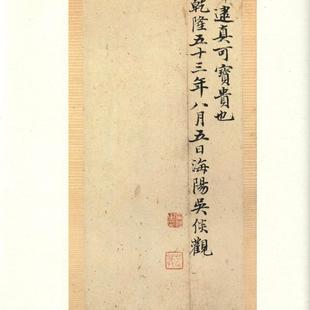 逮真可寶貴也
乾隆五十三年八月五日海陽吳倓觀